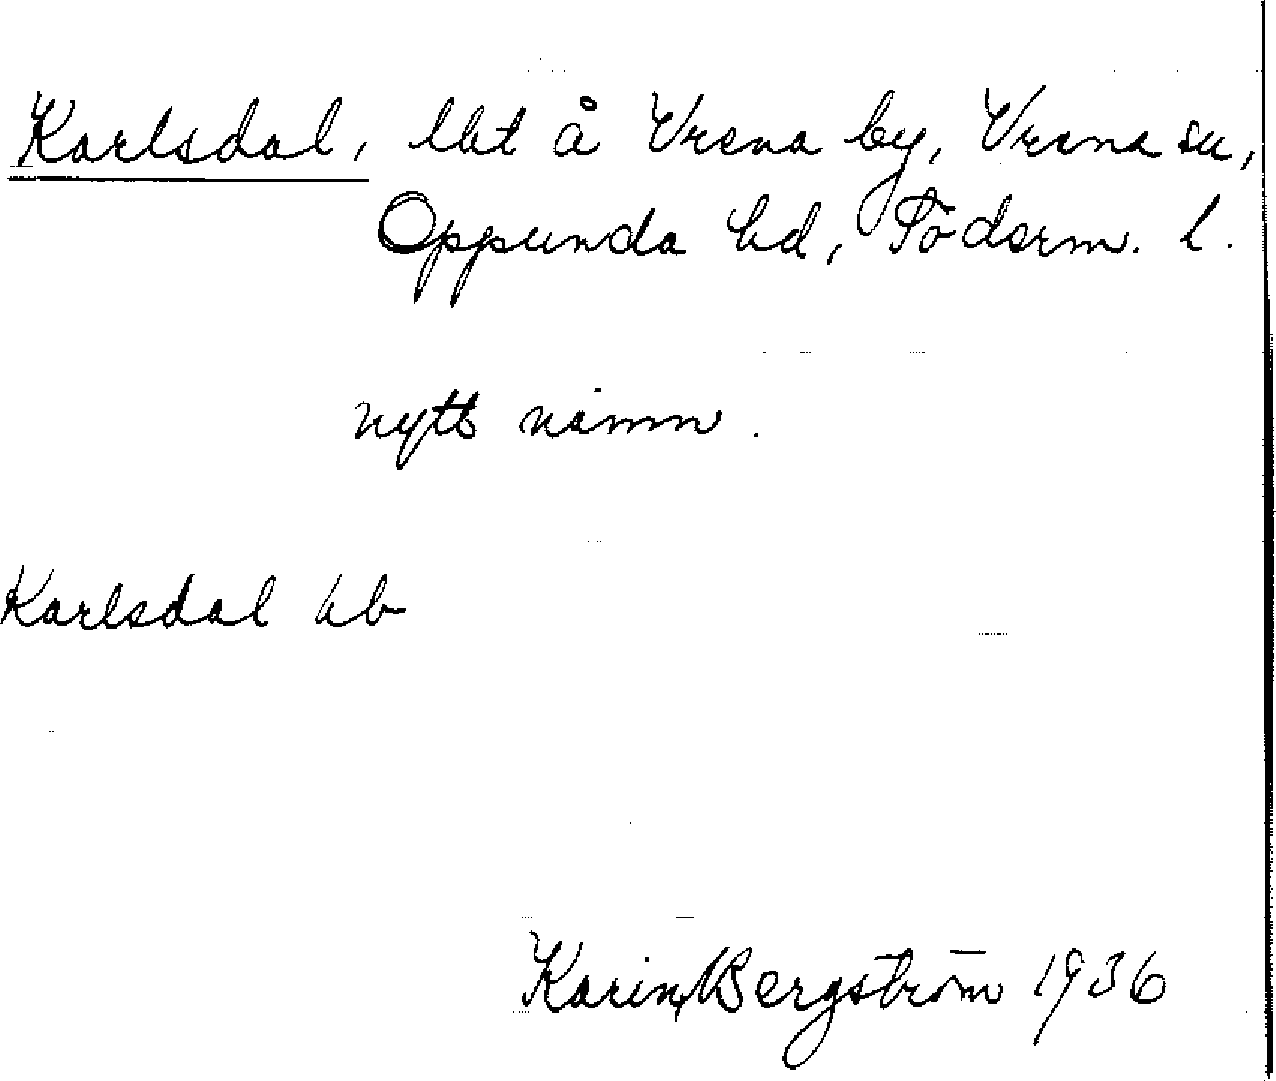 Karlsdal, lht å Vrena by, Vrena sn,
Oppunda hd, Söderm. l.
nytt namn.
Karlsdal hb
Karin Bergström 1936